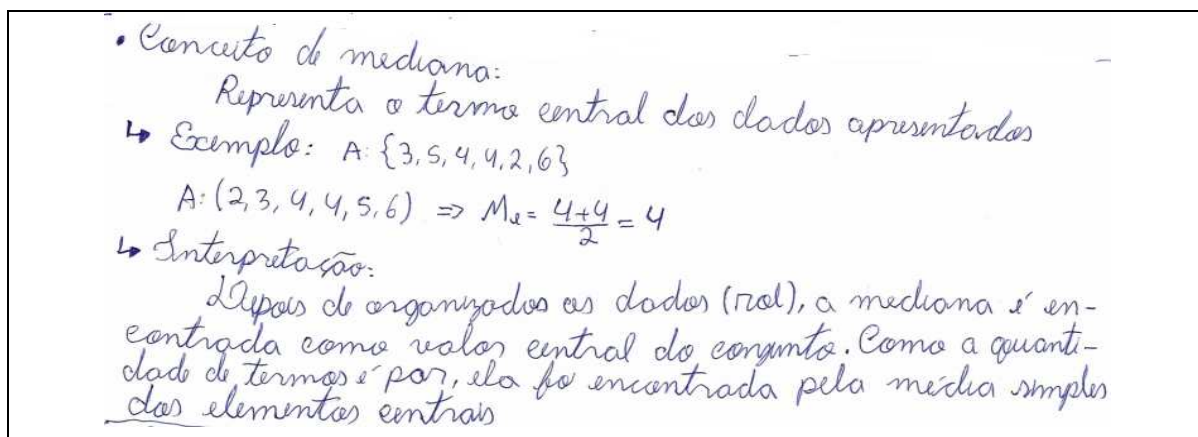 • Conceito de mediana:
Representa o termo central dos dados apresentados
↳ Exemplo: A: {3, 5, 4, 4, 2, 6}
A: (2, 3, 4, 4, 5, 6) => Me = (4+4)/2 = 4
↳ Interpretação:
Depois de organizados os dados (rol), a mediana é en-
contrada como valor central do conjunto. Como a quanti-
dade de termos é par, ela foi encontrada pela média simples
dos elementos centrais